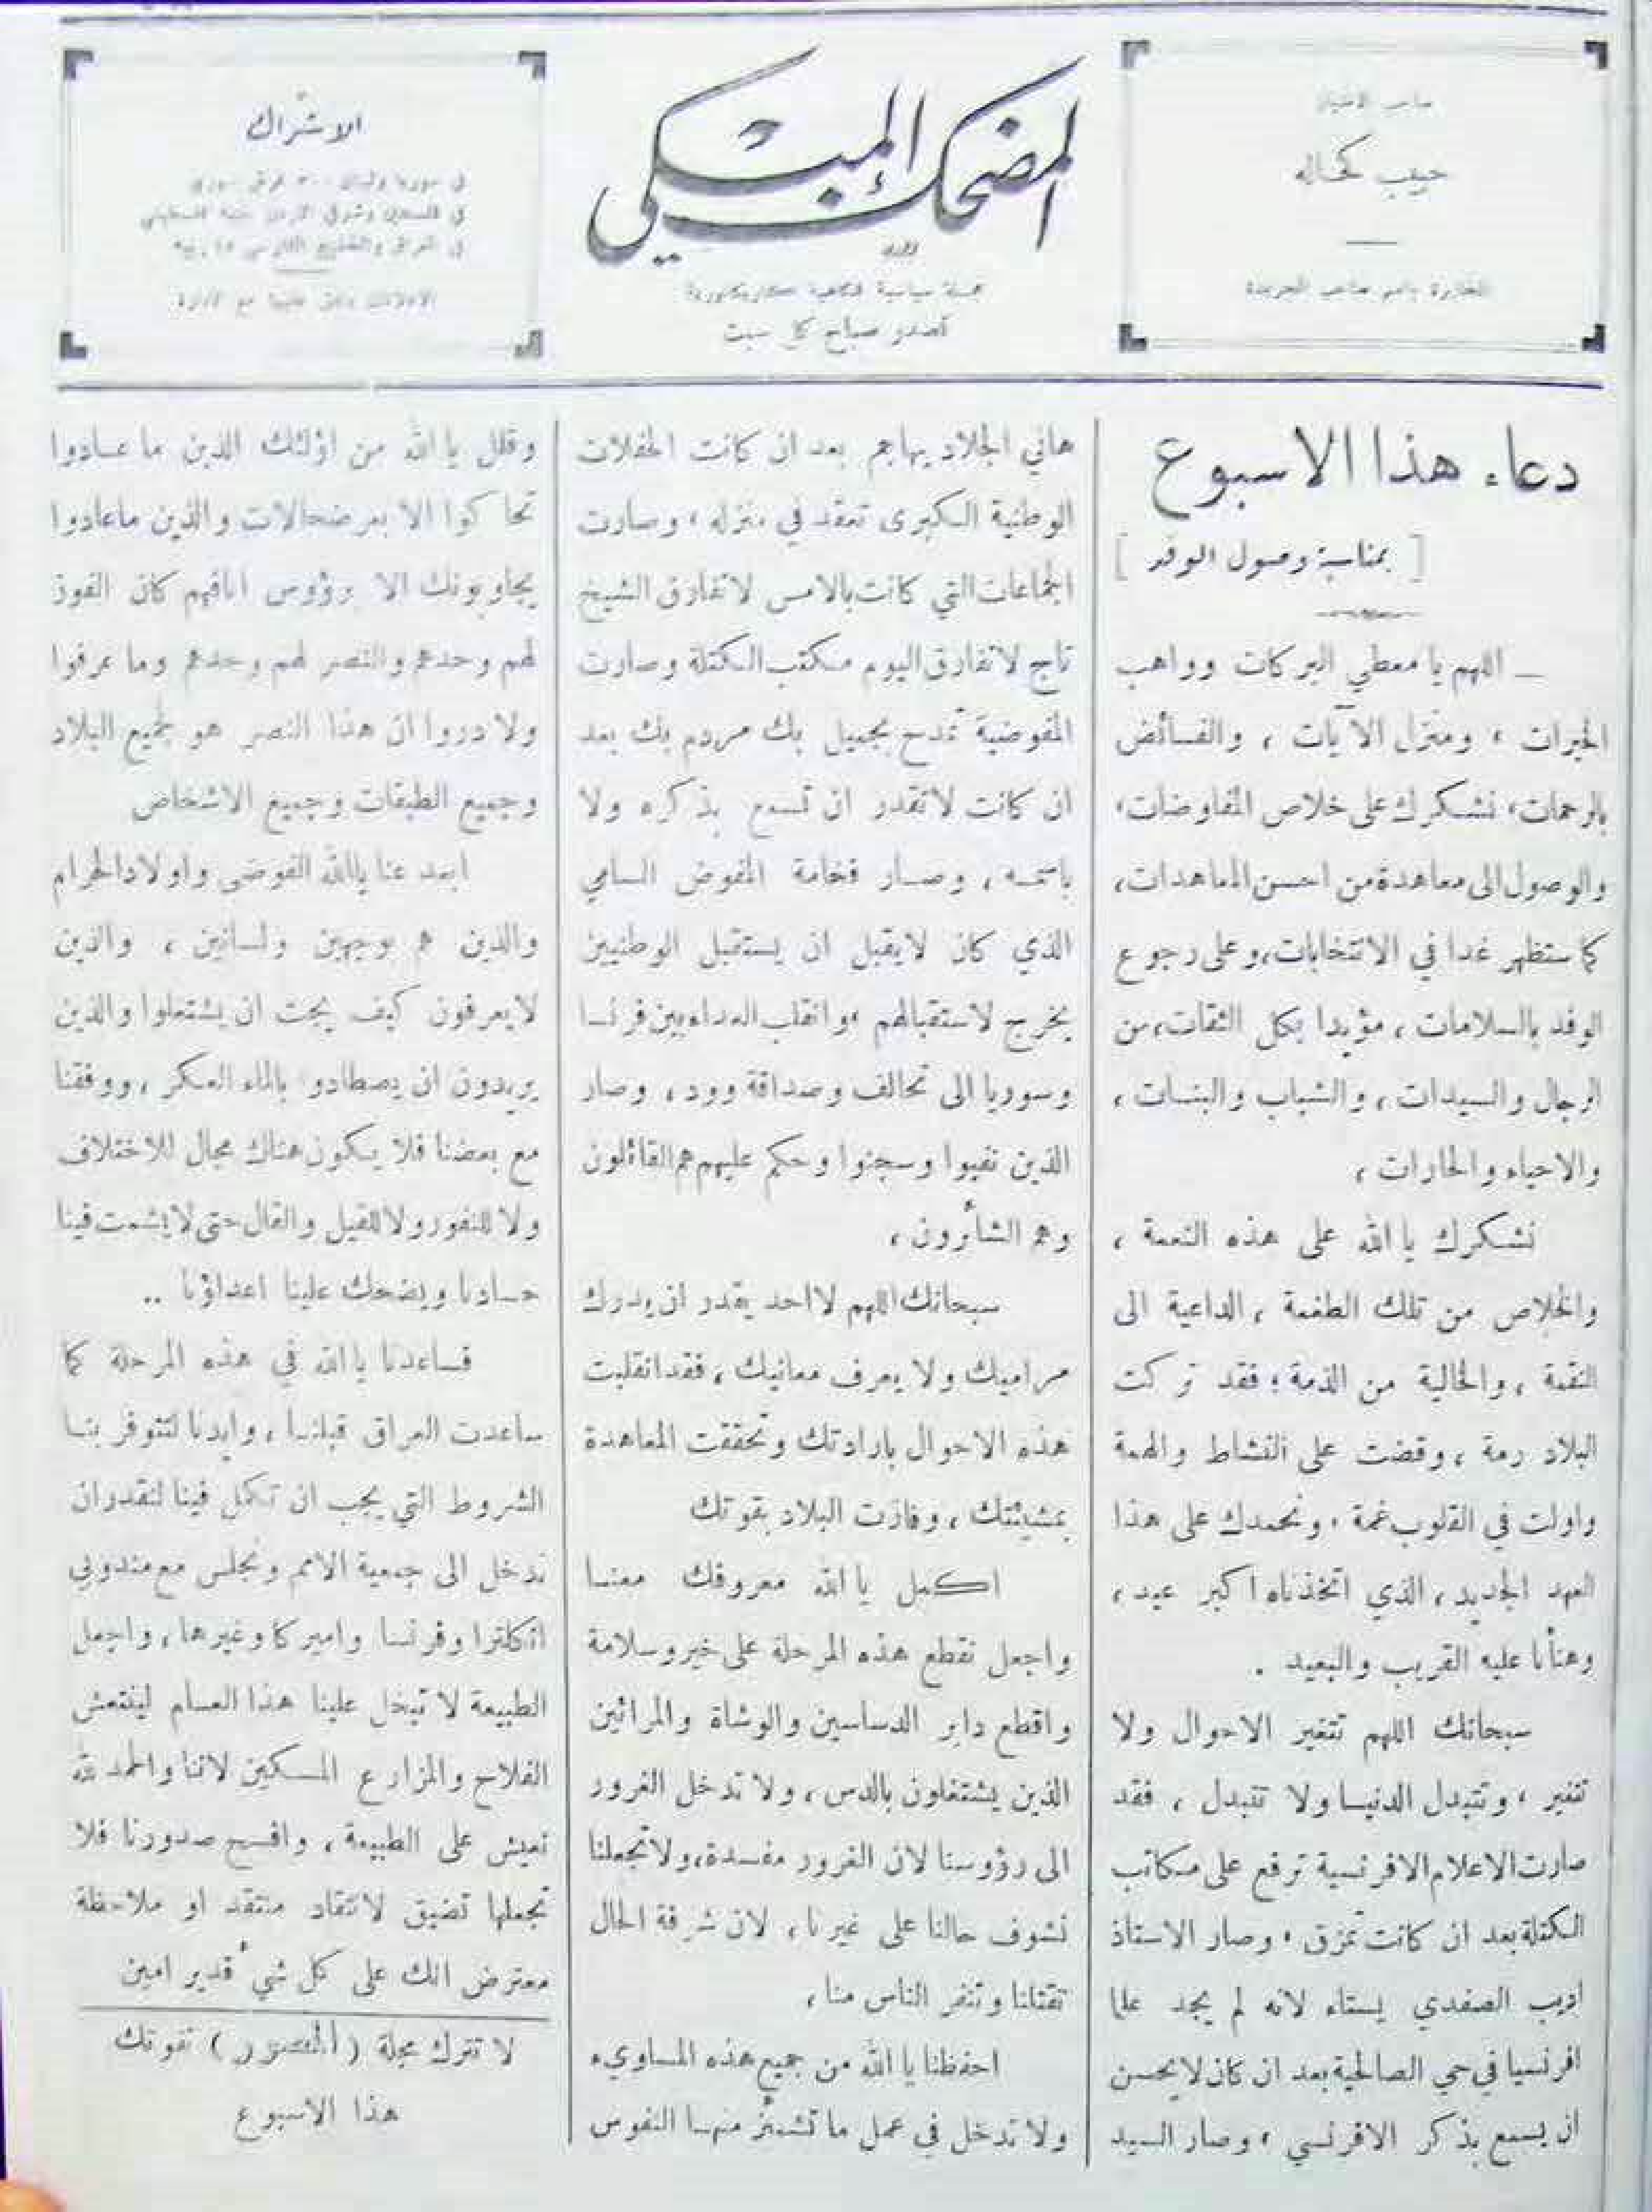 صاحب الامتياز
حبيب كحاله
المخابرة باسم صاحب الجريدة
المضحك المبكي
مجلة سياسية فكاهية كاريكاتورية
تصدر صباح كل سبت
الاشتراك
في سوريا ولبنان ٣٠٠ قرش سوري
في فلسطين وشرقي الاردن جنيه فلسطيني
في العراق والخليج الفارسي ١٥ ربيه
الاعلانات يتفق عليها مع الادارة
دعاء هذا الاسبوع
[ بمناسبة وصول الوفد ]
ــ اللهم يا معطي البركات وواهب
الخيرات ، ومنزل الآيات ، والفائض
بالرحمات، نشكرك على خلاص المفاوضات،
والوصول الى معاهدة من احسن المعاهدات،
كما ستظهر غدا في الانتخابات، وعلى رجوع
الوفد بالسلامات ، مؤيدا بكل الثقات، من
الرجال والسيدات ، والشباب والبنات ،
والاحياء والحارات ،
نشكرك يا الله على هذه النعمة ،
والخلاص من تلك الطغمة ، الداعية الى
النقمة ، والخالية من الذمة ؛ فقد تركت
البلاد رمة ، وقضت على النشاط والهمة
واولت في القلوب غمة ، ونحمدك على هذا
العهد الجديد ، الذي اتخذناه اكبر عيد ،
وهنأنا عليه القريب والبعيد .
سبحانك اللهم تتغير الاحوال ولا
تتغير ، وتتبدل الدنيا ولا تتبدل ، فقد
صارت الاعلام الافرنسية ترفع على مكاتب
الكتلة بعد ان كانت تمزق ، وصار الاستاذ
اديب الصفدي يستاء لانه لم يجد علما
افرنسيا في حي الصالحية بعد ان كان لا يحسن
ان يسمع بذكر الافرنسي ، وصار السيد
هاني الجلاد يهاجم بعد ان كانت الحفلات
الوطنية الكبرى تعقد في منزله ، وصارت
الجماعات التي كانت بالامس لا تفارق الشيخ
تاج لا تفارق اليوم مكتب الكتلة وصارت
المفوضية تمدح بجميل بك مردم بك بعد
ان كانت لا تقدر ان تسمع بذكره ولا
باسمه ، وصار فخامة المفوض السامي
الذي كان لا يقبل ان يستقبل الوطنيين
يخرج لاستقبالهم ، وانقلب العداء بين فرنسا
وسوريا الى تحالف وصداقة وود ، وصار
الذين نفيوا وسجنوا وحكم عليهم هم القائلون
وهم الشائرون ،
سبحانك اللهم لا احد يقدر ان يدرك
مراميك ولا يعرف معانيك ، فقد انقلبت
هذه الاحوال بارادتك وتحققت المعاهدة
بمشيئتك ، وفازت البلاد بقوتك
اكمل يا الله معروفك معنا
واجعل نقطع هذه المرحلة على خير وسلامة
واقطع دابر الدساسين والوشاة والمرائين
الذين يشتغلون بالدس ، ولا تدخل الغرور
الى رؤوسنا لان الغرور مفسدة، ولا تجعلنا
نشوف حالنا على غيرنا ، لان شوفة الحال
تقتلنا وتنفر الناس منا ،
احفظنا يا الله من جميع هذه المساوىء
ولا تدخل في عمل ما تشمئز منها النفوس
وقلل يا الله من اولئك الذين ما عادوا
تحاكوا الا بعرضحالات والذين ما عادوا
يجاوبونك الا برؤوس انافهم كان الفوز
لهم وحدهم والنصر لهم وحدهم وما عرفوا
ولا دروا ان هذا النصر هو لجميع البلاد
وجميع الطبقات وجميع الاشخاص
ابعد عنا يا الله الفوضى واولاد الحرام
والذين هم بوجهين ولسانين ، والذين
لا يعرفون كيف يجب ان يشتغلوا والذين
يريدون ان يصطادو بالماء العكر ، ووفقنا
مع بعضنا فلا يكون هناك مجال للاختلاف
ولا للنفور ولا للقيل والقال حتى لا يشمت فينا
حسادنا ويضحك علينا اعداؤنا ..
فساعدنا يا الله في هذه المرحلة كما
ساعدت العراق قبلنا ، وايدنا لتتوفر بنا
الشروط التي يجب ان تكمل فينا لنقدر ان
ندخل الى جمعية الامم ونجلس مع مندوبي
انكلترا وفرنسا واميركا وغيرها ، واجعل
الطبيعة لا تبخل علينا هذا العام لينتعش
الفلاح والمزارع المسكين لاننا والحمد لله
نعيش على الطبيعة ، وافسح صدورنا فلا
تجعلها تضيق لانتقاد منتقد او ملاحظة
معترض انك على كل شيء قدير امين
لا تترك مجلة ( المصور ) تفوتك
هذا الاسبوع